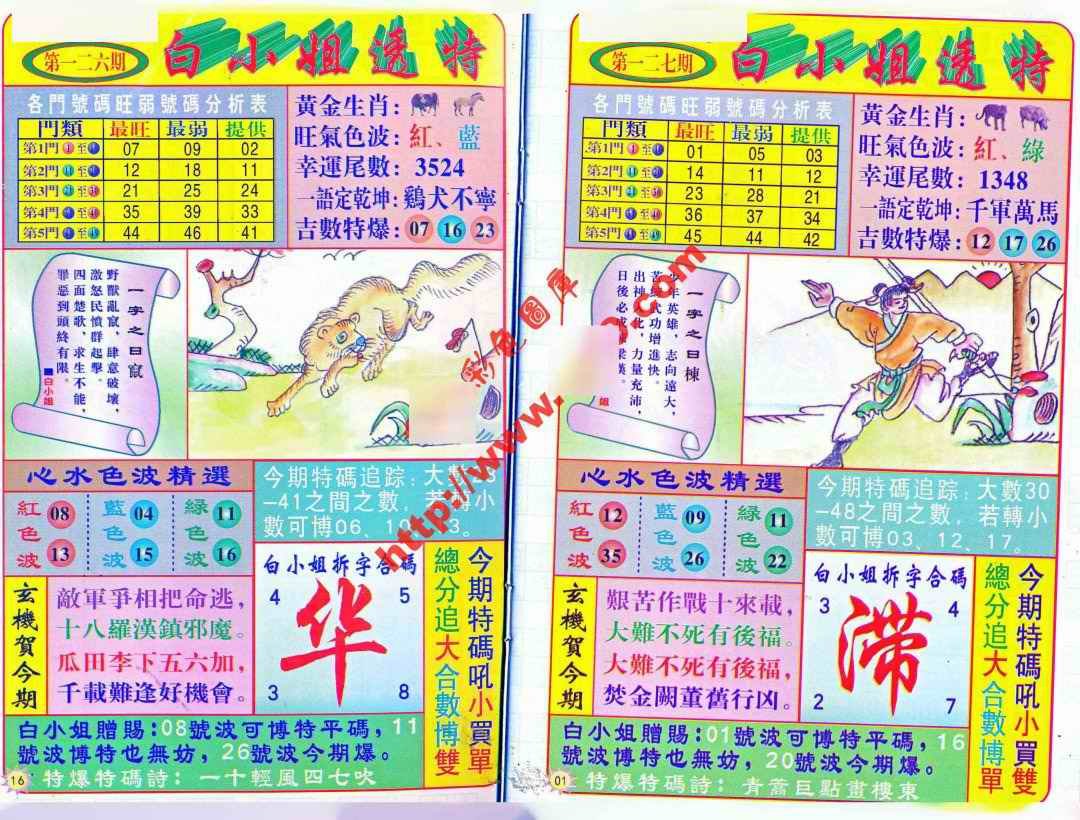 第一二六期
白小姐透特
各門號碼旺弱號碼分析表
門類 最旺 最弱 提供
第1門 至 07 09 02
第2門 至 12 18 11
第3門 至 21 25 24
第4門 至 35 39 33
第5門 至 44 46 41
黃金生肖:
旺氣色波:紅、藍
幸運尾數: 3524
一語定乾坤:鷄犬不寧
吉數特爆: 07 16 23
一字之曰竄
野獸亂竄，肆意破壞，
激怒民憤群起擊。
四面楚歌，求生不能，
罪惡到頭終有限。
■白小姐
心水色波精選
紅色波 08 13
藍色波 04 15
緑色波 11 16
今期特碼追踪:大數
-41之間之數，若轉小
數可博06、10、
玄機賀今期
敵軍爭相把命逃，
十八羅漢鎮邪魔。
瓜田李下五六加，
千載難逢好機會。
白小姐拆字合碼
4 5
华
3 8
總分追大合數博雙
今期特碼吼小買單
白小姐贈賜:08號波可博特平碼，11
號波博特也無妨，26號波今期爆。
特爆特碼詩: 一十輕風四七吹
16
第一二七期
白小姐透特
各門號碼旺弱號碼分析表
門類 最旺 最弱 提供
第1門 至 01 05 03
第2門 至 14 11 12
第3門 至 23 28 21
第4門 至 36 37 34
第5門 至 45 44 42
黃金生肖:
旺氣色波:紅、緑
幸運尾數: 1348
一語定乾坤:千軍萬馬
吉數特爆: 12 17 26
一字之曰棟
少年英雄，志向遠大，
苦練武功增進快。
出神入化，力量充沛，
日後必成
心水色波精選
紅色波 12 35
藍色波 09 26
緑色波 11 22
今期特碼追踪:大數30
-48之間之數，若轉小
數可博03、12、17。
玄機賀今期
艱苦作戰十來載，
大難不死有後福。
大難不死有後福，
焚金闕董舊行凶。
白小姐拆字合碼
3 4
滯
2 7
總分追大合數博單
今期特碼吼小買雙
白小姐贈賜:01號波可博特平碼，16
號波博特也無妨，20號波今期爆。
特爆特碼詩: 青蒿巨點畫樓東
01
http://www.
.com
彩色圖庫